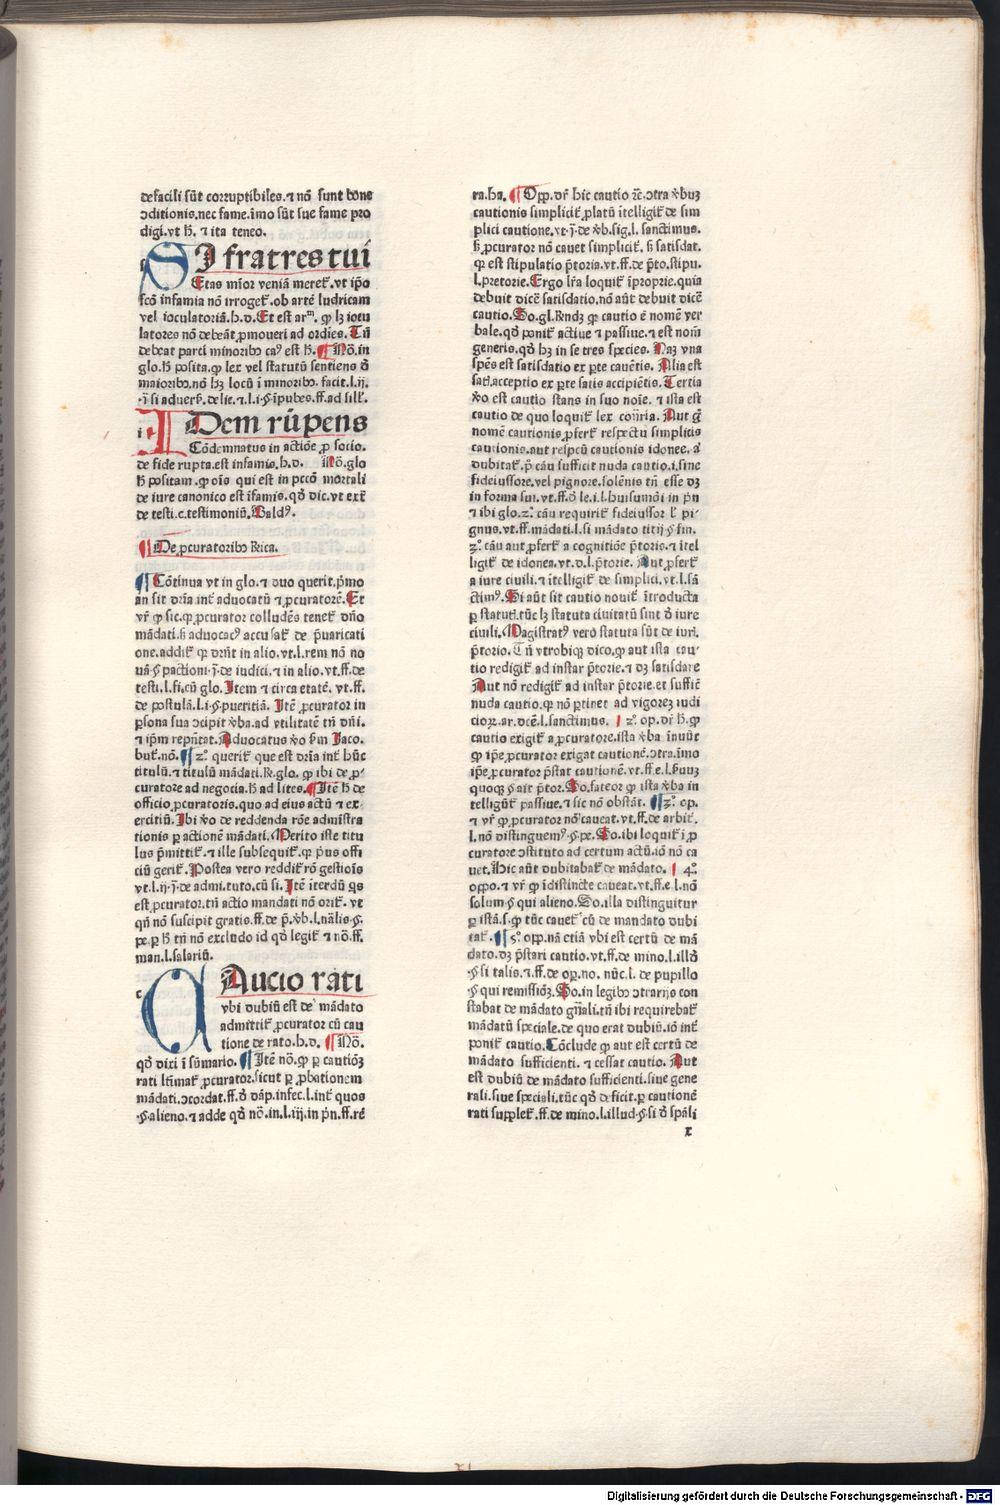 defacili sūt corruptibiles.⁊ nō sunt bone
ↄditionis.nec fame.īmo sūt sue fame pro
digi.vt h̄. ⁊ ita teneo.
SI fratres tui
Etas mīor veniā meret̄.vt ip̄o
fcō infamia nō irroget̄.ob artē ludricam
vel ioculatoriā.h.d.Et est arᵐ. ꝙ lꝫ iocu
latores nō debeāt ꝓmoueri ad ordīes. Tn̄
debeat parci minoribꝰ caꝰ est h̄. ¶ Nō.in
glo.h̄ posita.ꝙ lex vel statutū sentiens ō
maioribꝰ.nō hꝫ locū ī minoribꝰ. facit.l.ij.
i
IDem rūpens
Cōdemnatus in actiōe ꝓ socio.
de fide rupta.est infamis.h.d. Nō.glo
h̄ positam.ꝙ oīs qui est in pccō mortali
de iure canonico est īfamis.qō dic.vt ext̄
de testi.c.testimoniū.Baldꝰ.
¶ De ꝓcuratoribꝰ Rica.
¶ Cōtinua vt in glo.⁊ duo querit.p̄mo
an sit dr̄ia int̄ aduocatū ⁊ ꝓcuratorē.Et
vr̄ ꝙ sic.ꝙ ꝓcurator colludēs tenet̄ dn̄o
mādati.h̄ aduocacꝰ accusat̄ de p̄uaricati
one.addit̄ ꝙ dr̄nt in alio.vt.l.rem nō no
uā.§ pactioni.ꝯ.de iudici.⁊ in alio.vt.ff.de
testi.l.fi.cū glo. Item ⁊ circa etatē. vt.ff.
de postulā.l.i.§ pueritiā. Itē ꝓcurator in
ꝑsona sua ↄcipit v̄ba.ad vtilitatē tn̄ dn̄i.
⁊ ip̄m rep̄ntat.Aduocatus v̄o h̄m Jaco.
but̄.nō.¶ 2° querit̄ que est dr̄ia int̄ hūc
titulū.⁊ titulū mādati.R̄.glo. ꝙ ibi de ꝓ
curatore ad negocia.h̄ ad lites.¶ Itē h̄ de
officio ꝓcuratoris.quo ad eius actū ⁊ ex-
ercitiū. Ibi v̄o de reddenda rōne admīstra
tionis ꝑ actionē mādati. Merito iste titu
lus p̄mittit̄.⁊ ille subsequit̄.ꝙ p̄us offi
ciū gerit̄. Postea vero reddit̄ rō gestiōis
vt.l.ij.ꝯ.de admi.tuto.cū si. Itē īterdū qs
est ꝓcurator.tn̄ actio mandati nō orit̄. vt
qn̄ nō suscipit gratis.ff.de p̄.v̄b.l.nālis.§.
pe.ꝑ h̄ tn̄ nō excludo id qō legit̄ ⁊ nō.ff.
man.l.salariū.
c
CAucio rati
vbi dubiū est de mādato
admittit̄ ꝓcurator cū cau
tione de rato.h.d. ¶ Nō.
qō dixi ī sūmario. ¶ Itē nō.ꝙ ꝑ cautiōꝫ
rati ltīmat̄ ꝓcurator.sicut ꝑ ꝓbationem
mādati.ↄcordat.ff.ō dāp.infec.l.int̄ quos
§.alieno.⁊ adde qō nō.in.l.iij.in p̄n.ff.rē
ra.ha. ¶ Opp.dr̄ hic cautio ⁊c.ↄtra v̄buꝫ
cautionis simplicit̄ ꝓlatū ītelligit̄ de sim
plici cautione.vt.ꝯ.de v̄b.sig.l. sanctimus.
h̄ ꝓcurator nō cauet simplicit̄. h̄ satisdat.
ꝙ est stipulatio p̄toria.vt.ff.de p̄to.stipu.
l.pretorie.Ergo lr̄a loquit̄ īproprie.quia
debuit dicē satisdatio.nō aūt debuit dicē
cautio.So.gl.R̄ndꝫ ꝙ cautio ē nomē ver
bale.qō ponit̄ actiue ⁊ passiue.⁊ est nom̄
generis.qō hꝫ in se tres species. Naꝫ vna
spēs est satisdatio ex ꝑte cauētis. Alia est
sati.acceptio ex ꝑte satis accipiētis. Tertia
v̄o est cautio stans in suo noīe. ⁊ ista est
cautio de quo loquit̄ lex coīūria. Aut ḡ
nomē cautionis ꝓfert̄ respectu simplicis
cautionis.aut respcū cautionis idonee. a
dubitat̄.p̄ cāu sufficit nuda cautio.i.sine
fideiussore.vel pignore.solēnis tn̄ esse dꝫ
in forma sui.vt.ff.ō le.i.l.huiusmōi in p̄n
⁊ ibi glo.2° cāu requirit̄ fideiussor l̄ pi-
gnus.vt.ff.mādati.l.si mādato titij.§ fin.
3° cāu aut ꝓfert̄ a cognitiōe p̄toris.⁊ ītel
ligit̄ de idonea.vt.d.l.p̄torie. Aut ꝓfert̄
a iure ciuili.⁊ ītelligit̄ de simplici.vt.l.sā
ctimꝰ.Si aūt sit cautio nouit̄ ītroducta
ꝑ statutū.tūc lꝫ statuta ciuitatū sint ō iure
ciuili. Magistratꝰ vero statuta sūt de iure
p̄torio. Tn̄ vtrobiqꝫ dico.ꝙ aut ista cau-
tio redigit̄ ad instar p̄torie.⁊ dꝫ satisdare
Aut nō redigit̄ ad instar p̄torie.et suffic̄
nuda cautio.ꝙ nō ꝑtinet ad vigorez iudi
cioꝝ.ar.dcē.l.sanctimus. ¶ 2° op.dr̄ h̄.ꝙ
cautio exigit̄ a ꝓcuratore.ista v̄ba īnuūt
ꝙ ip̄e ꝓcurator exigat cautionē.ↄtra.īmo
ip̄e ꝓcurator p̄stat cautionē.vt.ff.e.l.
quoqꝫ.§ ait p̄tor.So.fateor ꝙ ista v̄ba in
telligūt̄ passiue.⁊ sic nō obstāt. ¶ 3° op.
⁊ vr̄ ꝙ ꝓcurator nō caueat.vt.ff.de arbit̄.
l.nō distinguemꝰ.§.pe.So.ibi loquit̄ ī ꝓ
curatore ↄstituto ad certum actū.iō nō ca
uet.Hic aūt dubitabat̄ de mādato. ¶ 4°
oppo.⁊ vr̄ ꝙ īdistincte caueat.vt.ff.e.l.nō
solum.§ qui alieno.So.illa distinguitur
ꝑ istā.s.ꝙ tūc cauet̄ cū de mandato dubi
tat̄.¶ 5° opp.nā etiā vbi est certū de mā
dato.dꝫ p̄stari cautio.vt.ff.de mino.l.illō
§ si talis.⁊.ff.de op.no. nūc.l. de pupillo
§ qui remissiōꝫ.So.in legibꝰ ↄtrarijs con
stabat de mādato gn̄ali.tn̄ ibi requirebat̄
mādatū speciale.de quo erat dubiū.iō int̄
ponit̄ cautio.Cōclude ꝙ aut est certū de
mādato sufficienti.⁊ cessat cautio. Aut
est dubiū de mādato sufficienti.siue gene
rali.siue speciali.tūc qō deficit.ꝑ cautionē
rati supplet̄.ff.de mino.l.illud.§ si ō sp̄ali
x
Digitalisierung gefördert durch die Deutsche Forschungsgemeinschaft - DFG